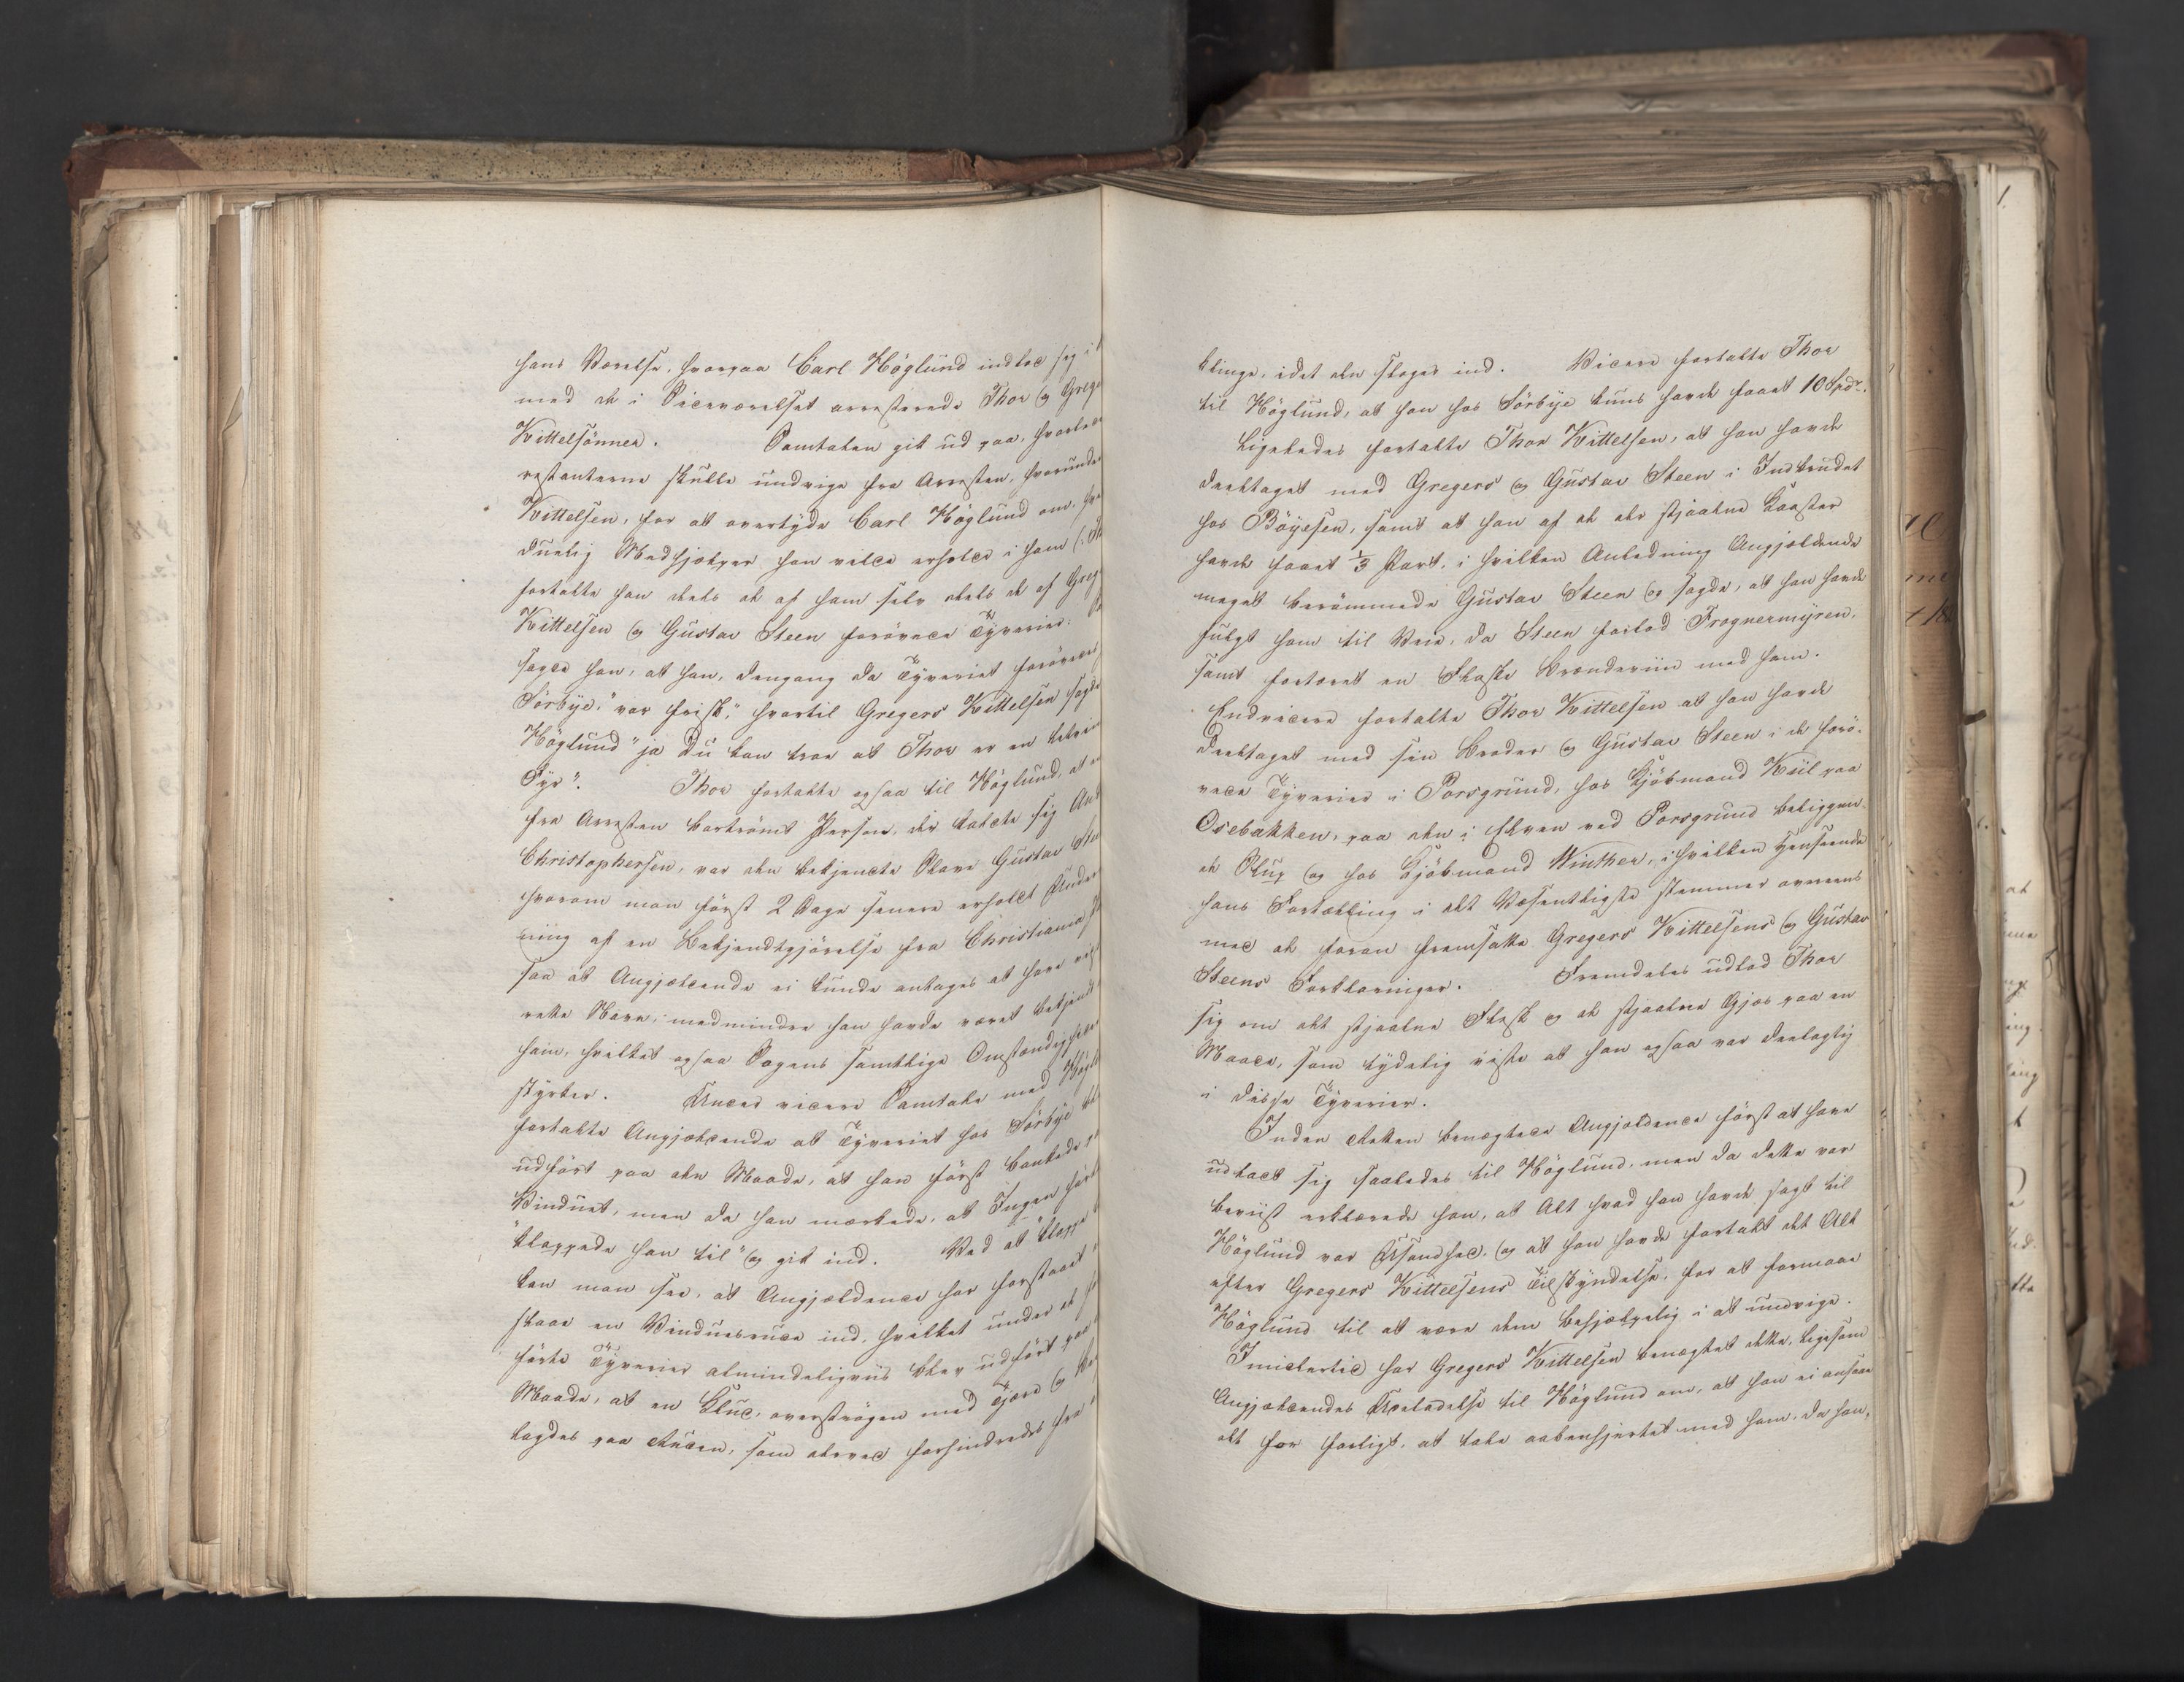 hans Værelse, hvorpaa Carl Höglund indlod sig i
med de i Sideværelset arresterede Thor og Grege
Kittelsönner. Samtalen gik ud paa, hvorled
restanterne skulle undvige fra Arresten, hvorunder
Kittelsen, for at overtyde Carl Höglund om, hv
duelig Medhjælper han vilde erholde i ham
fortalte han deels de af ham selv deels de af Greg
Kittelsen og Gustav Steen forövede Tyverier.
sagde han, at han, dengang da Tyveriet forövedes
Sörbye, "var frisk," hvortil Gregers Kittelsen sagde
Höglund "ja Du kan troe at Thor er en
Fyr". Thor fortalte ogsaa til Höglund, at
fra Arresten bortrömt Person, der kaldte sig And
Christophersen, var den bekjendte Slave Gustav Ste
hvorom man först 2 Dage senere erholdt Under
ning af en Bekjendtgjörelse fra Christiania
saa at Angjældende ei kunde antages at have
rette Navn, medmindre han havde været bekjendt
ham, hvilket ogsaa Sagens samtlige Omstændighede
styrker. Under videre Samtale med Högl
fortalte Angjældende at Tyveriet hos Sörbye
udfört paa den Maade, at han först bankede
Vinduet, men da han mærkede, at Ingen hör
"klappede han til" og gik ind. Ved at "klappe
kan man see, at Angjældende har forstaaet
slaae en Vinduesrude ind, hvilket under de
förte Tyverier almindeligviis blev udfört paa
Maade, at en Klud, overströgen med Tjære og
lagdes paa Ruden, som derved forhindredes fra
klinge, idet den sloges ind. Videre fortalte Thor
til Höglund, at han hos Sörbye kuns havde faaet 10 Spdr.
Ligeledes fortalte Thor Kittelsen, at han havde
deeltaget med Gregers og Gustav Steen i Indbrudet
hos Böyesen, samt at han af de der stjaalne Koster
havde faaet 1/3 Part, i hvilken Anledning Angjældende
meget berömmede Gustav Steen og sagde, at han havde
fulgt ham til Veie, da Steen forlod Frognermyren,
samt fortæret en Flaske Brændeviin med ham.
Endvidere fortalte Thor Kittelsen at han havde
deeltaget med sin Broder og Gustav Steen i de forö-
vede Tyverier i Porsgrund, hos Kjöbmand Kiil paa
Osebakken, paa den i Elven ved Porsgrund beliggen-
de Slup og hos Kjöbmand Winther, i hvilken Henseende
hans Fortælling i det Væsentligste stemmer overeens
med de foran fremsatte Gregers Kittelsens og Gustav
Steens Forklaringer. Fremdeles udlod Thor
sig om det stjaalne Flesk og de stjaalne Gjæs paa en
Maade, som tydelig viste at han ogsaa var deelagtig
i disse Tyverier.
Inden Retten benægtede Angjældende först at have
udladt sig saaledes til Höglund, men da dette var
beviist erklærede han, at Alt hvad han havde sagt til
Höglund var Usandhed, og at han havde fortalt det Alt
efter Gregers Kittelsens Tilskyndelse, for at formaae
Höglund til at være dem behjælpelig i at undvige.
Imidlertid har Gregers Kittelsen benægtet dette, ligesom
Angjældendes Udeladelse til Höglund om, at han ei ansaae
det for farligt, at tale aabenhjertet med ham, da han,